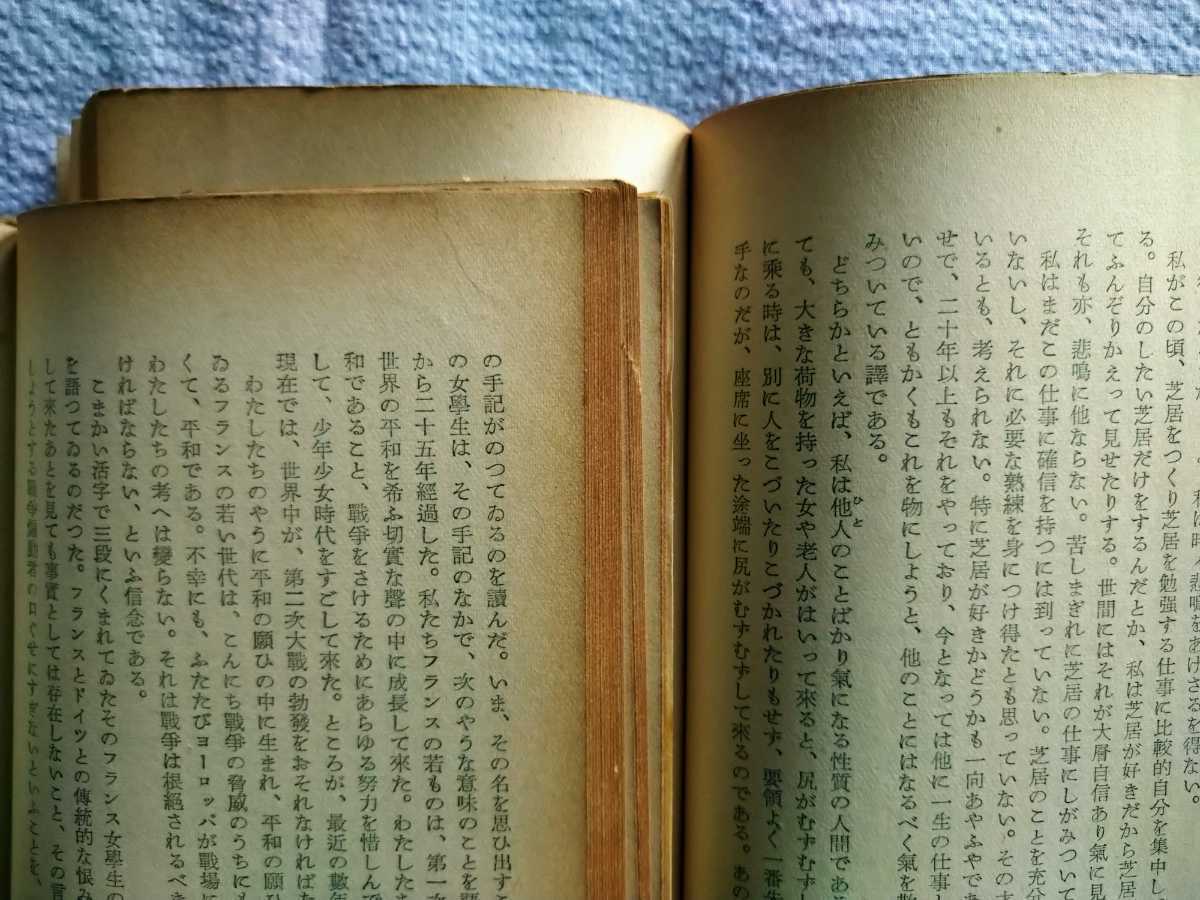 私がこの頃、芝居をつくり芝居を勉強する仕事に比較的自分を集中し
る。自分のしたい芝居だけをするんだとか、私は芝居が好きだから芝居
てふんぞりかえって見せたりする。世間にはそれが大層自信あり氣に見
それも亦、悲鳴に他ならない。苦しまぎれに芝居の仕事にしがみついて
私はまだこの仕事に確信を持つには到っていない。芝居のことを充分
いないし、それに必要な熟練を身につけ得たとも思っていない。その
いるとも、考えられない。特に芝居が好きかどうかも一向あやふやであ
せで、二十年以上もそれをやっており、今となっては他に一生の仕事
いので、ともかくもこれを物にしようと、他のことにはなるべく氣を
みついている譯である。
どちらかといえば、私は他人のことばかり氣になる性質の人間である
ひと
ても、大きな荷物を持った女や老人がはいって來ると、尻がむずむず
に乘る時は、別に人をこづいたりこづかれたりもせず、要領よく一番
手なのだが、座席に坐った途端に尻がむずむずして來るのである。あの
の手記がのつてゐるのを讀んだ。いま、その名を思ひ出す
の女學生は、その手記のなかで、次のやうな意味のことを
から二十五年經過した。私たちフランスの若ものは、第一
世界の平和を希ふ切實な聲の中に成長して來た。わたした
和であること、戰爭をさけるためにあらゆる努力を惜しんで
して、少年少女時代をすごして來た。ところが、最近の數年
現在では、世界中が、第二次大戰の勃發をおそれなければ
わたしたちのやうに平和の願ひの中に生まれ、平和の願ひ
ゐるフランスの若い世代は、こんにち戰爭の脅威のうちに
くて、平和である。不幸にも、ふたたびヨーロッパが戰場に
わたしたちの考へは變らない。それは戰爭は根絕されるべき
ければならない、といふ信念である。
こまかい活字で三段にくまれてゐたそのフランス女學生の
を語つてゐるのだつた。フランスとドイツとの傳統的な恨み
して來たあとを見ても事實としては存在しないこと、その言
しようとする戰爭煽動者の口ぐせにすぎないといふことを、